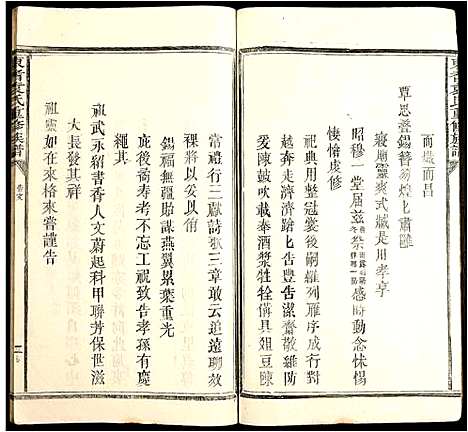 而熾而昌
覃恩疊錫簪笏煌匕肅雝
寢廟靈爽式臧是用孝享
昭穆一堂屆茲祭感時動念怵惕
悽愴虔修
祀典用整冠裳後嗣羅列雁序成行對
越在天奔走濟濟蹌匕告豐告潔齋散雖防
爰陳鼓吹載奉酒漿牲牷僃具俎豆陳
常禮行三獻詩歌三章敢云追遠聊效
祼將以妥以侑
錫福無疆貽謀燕翼累葉重光
庇後喬孝考不忘工祝致告孝孫有慶
繩其
祖武永紹書香人文蔚起科甲聯芳保世滋
大長發其祥
祖靈如在來格來嘗謹告